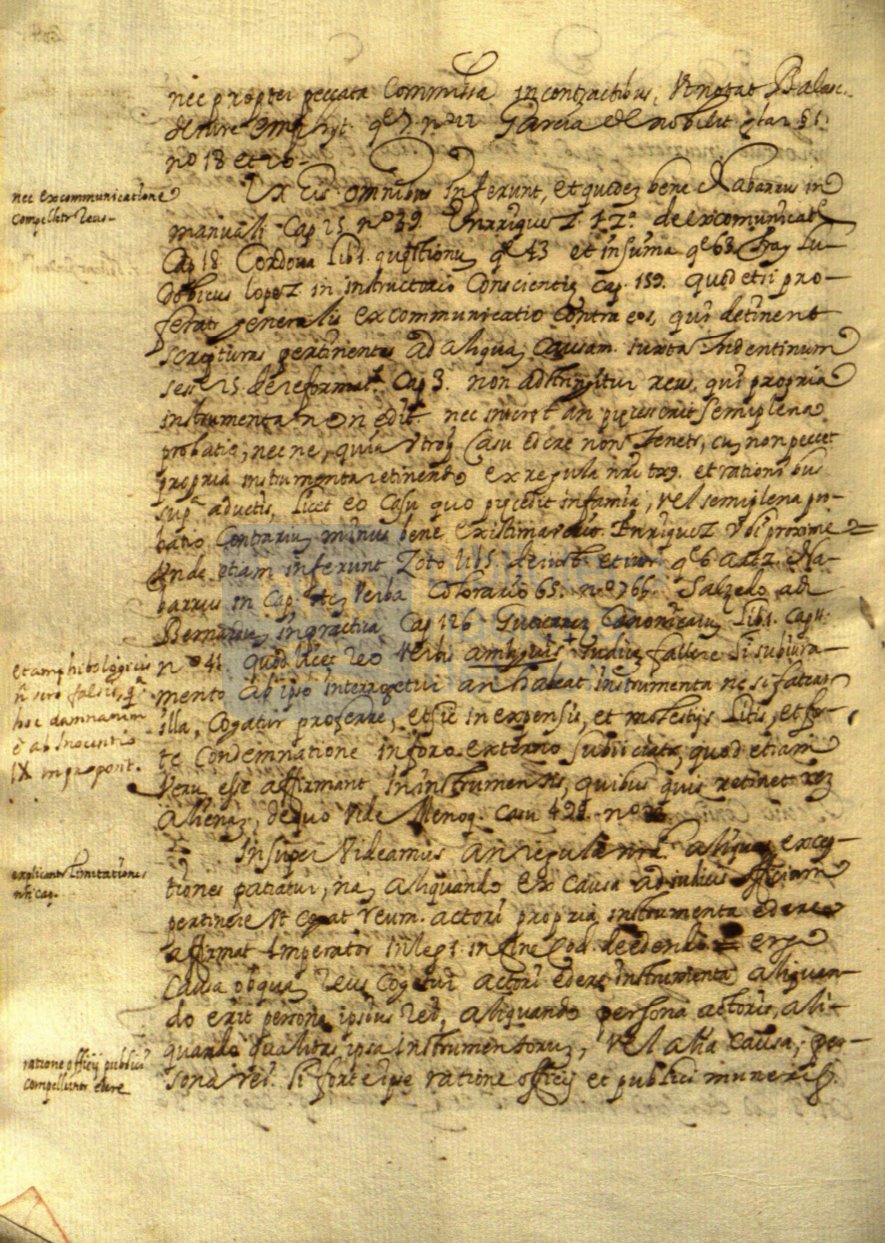 nec propter peccata Commissa in contractibus, Ut notat Balasc.
de iure emphyt. q. 7 nº 22 Garcia de nobilit glos §1.
nº 18 et 20
nec excommunicatione
compellitr Reus
Ex Eis omnibus inferunt, et quidez bene Nabarrus in
manuali Cap 25 nº 39. Enrriquez de excomunicat
Cap 18 Cordova lib 1. questionuz q. 43 et in suma q. 63. fray Lu-
dobicus lopez in instructorio Conscientiæ Cap. 159. quod etsi pro-
feratr generalis excommunicatio Contra eos, qui detinent
scripturas pertinentes ad aliquaz Causam iuxta tridentinum
sess 25 de reformat. Cap 3. non adstringitur reus, qui propria
instrumenta non edit nec interest an precesserit semiplena
probatio, nec ne, quia utroqz Casu edere non tenetr, cuz non peccet
propria instrumenta retinendo ex regula nrã et rationibus
supª aductis, licet eo Casu quo precedit infamia, vel semiplena pro-
batio Contrariuz minus bene existimaverit Enrriquez Ubi proxime
Unde etiam inferunt Zoto lib 5 de iust. et iur q. 6 art 2. Na-
barrus in Cap. Verba Colorario 65. nº 766. Salzedo ad
Bernarduz in practica Cap 126 Gutierrez Canonicaruz lib 1. Cap 11
nº 41. quod licet reo Verbis ambiguis Iudicez fallere si sub iura-
et amphibologicis
nõ vero falsis, qª
hoc damnatum
e ab Inocentio
IX in propont.
mento ab ipso interrogetur an habeat instrumenta ne si fateatr
illa, Cogatur proferre, et sic in expensis, et molestijs litis, et for-
te Condemnatione in foro externo subiiciatr, quod etiam
Veruz esse affirmant in instrumentis, quibus quis retinet rez
Alienaz, de quo Vide Menoq. Casu 421. nº
explicantr limitationes
hui cap.
Insuper Videamus an regula nrã aliquas excep-
tiones patiatur, naz aliquando ex causa ad iudicis officium
pertinere Ut cogat reum actori propria instrumenta edere
affirmat Imperator in leg 1. in fine Cod. de edendo = ergo
Causa ob quaz reus Cogetur actori edere instrumenta aliquan-
do erit persona ipsius rei, aliquando persona actoris, ali-
quando qualitas ipsa instrumentoruz, vel alia Causa, per-
ratione officij publici
compellitur edere
sona rei. si forte ipse ratione officij et publici muneris